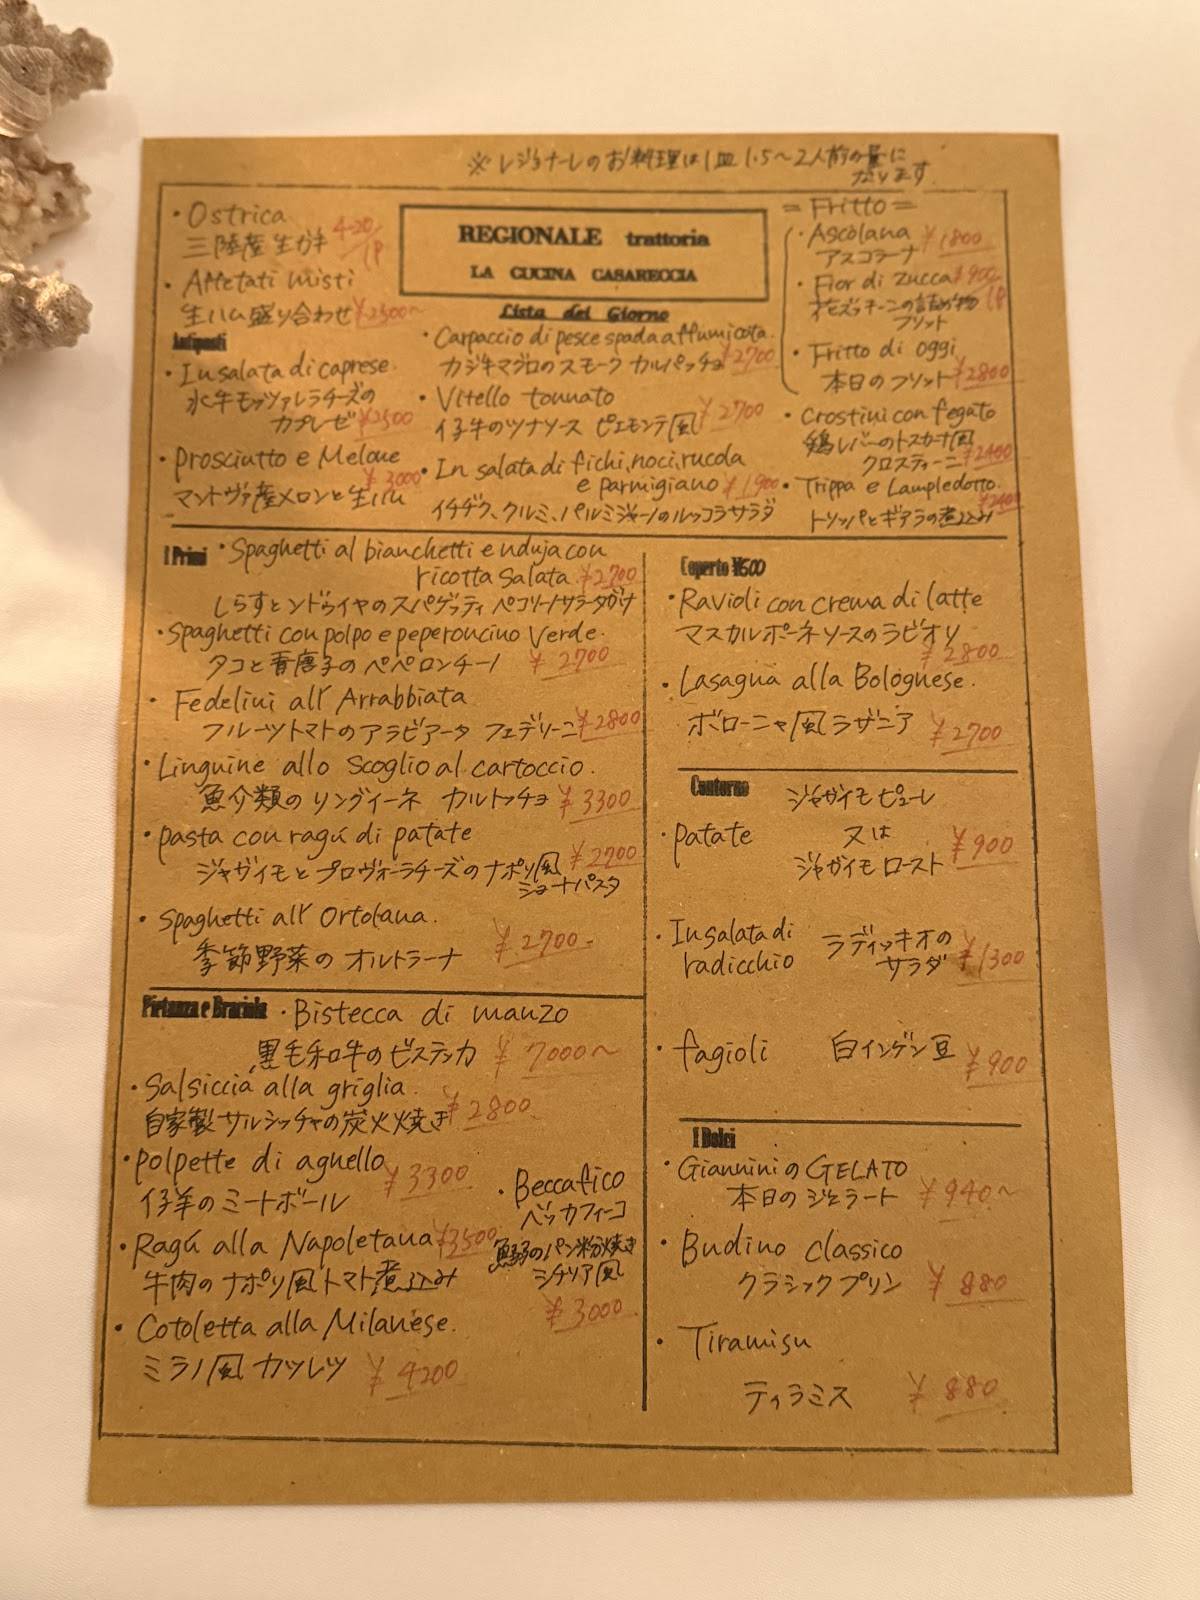 ※ レジョナーレのお料理は1皿 1.5〜2人前の量に
なります
REGIONALE trattoria
LA CUCINA CASARECCIA
Lista del Giorno
・Ostrica
三陸産生ガキ 420/1P
・Affetati misti
生ハム盛り合わせ ¥2500〜
Antipasti
・Insalata di caprese
水牛モッツァレラチーズの
カプレーゼ ¥2500
・Prosciutto e Melone
¥3000
マントヴァ産メロンと生ハム
・Carpaccio di pesce spada affumicata.
カジキマグロのスモーク カルパッチョ ¥2700
・Vitello tonnato
仔牛のツナソース ピエモンテ風 ¥2700
・Insalata di fichi, noci, rucola
e parmigiano ¥1900
イチヂク、クルミ、パルミジャーノのルッコラサラダ
= Fritto =
・Ascolana ¥1800
アスコラーナ
・Fior di zucca ¥900
花ズッキーニの詰め物 1P
フリット
・Fritto di oggi
本日のフリット ¥2800
・Crostini con fegato
鶏レバーのトスカーナ風
クロスティーニ ¥2400
・Trippa e Lampledotto.
¥2400
トリッパとギアラの煮込み
I Primi
・Spaghetti al bianchetti e nduja con
ricotta salata ¥2700
しらすとンドゥイヤのスパゲッティ ペコリーノサラータがけ
・Spaghetti con polpo e peperoncino verde.
タコと青唐子のペペロンチーノ ¥2700
・Fedelini all' Arrabbiata
フルーツトマトのアラビアータ フェデリーニ ¥2800
・Linguine allo scoglio al cartoccio.
魚介類のリングイーネ カルトッチョ ¥3300
・pasta con ragú di patate
ジャガイモとプロヴォーラチーズのナポリ風 ¥2700
ショートパスタ
・Spaghetti all' Ortolana.
季節野菜の オルトラーナ ¥2700-
Coperto ¥500
・Ravioli con crema di latte
マスカルポーネソースのラビオリ
¥2800
・Lasagna alla Bolognese.
ボローニャ風ラザニア ¥2700
Contorno
・patate
ジャガイモピューレ
又は
ジャガイモロースト
¥900
・Insalata di
radicchio
ラディッキオの
サラダ ¥1300
・fagioli 白インゲン豆 ¥900
Pietanza e Braciola
・Bistecca di manzo
黒毛和牛のビステッカ ¥7000〜
・Salsiccia alla griglia.
自家製サルシッチャの炭火焼き ¥2800
・polpette di agnello
仔羊のミートボール ¥3300
・Ragú alla Napoletana ¥3500
牛肉のナポリ風トマト煮込み
・Cotoletta alla Milanese.
ミラノ風カツレツ ¥4200
・Beccafico
ベッカフィーコ
のパン粉焼き
シチリア風
¥3000
I Dolci
・GianniniのGELATO
本日のジェラート ¥940〜
・Budino classico
クラシックプリン ¥880
・Tiramisu
ティラミス ¥880